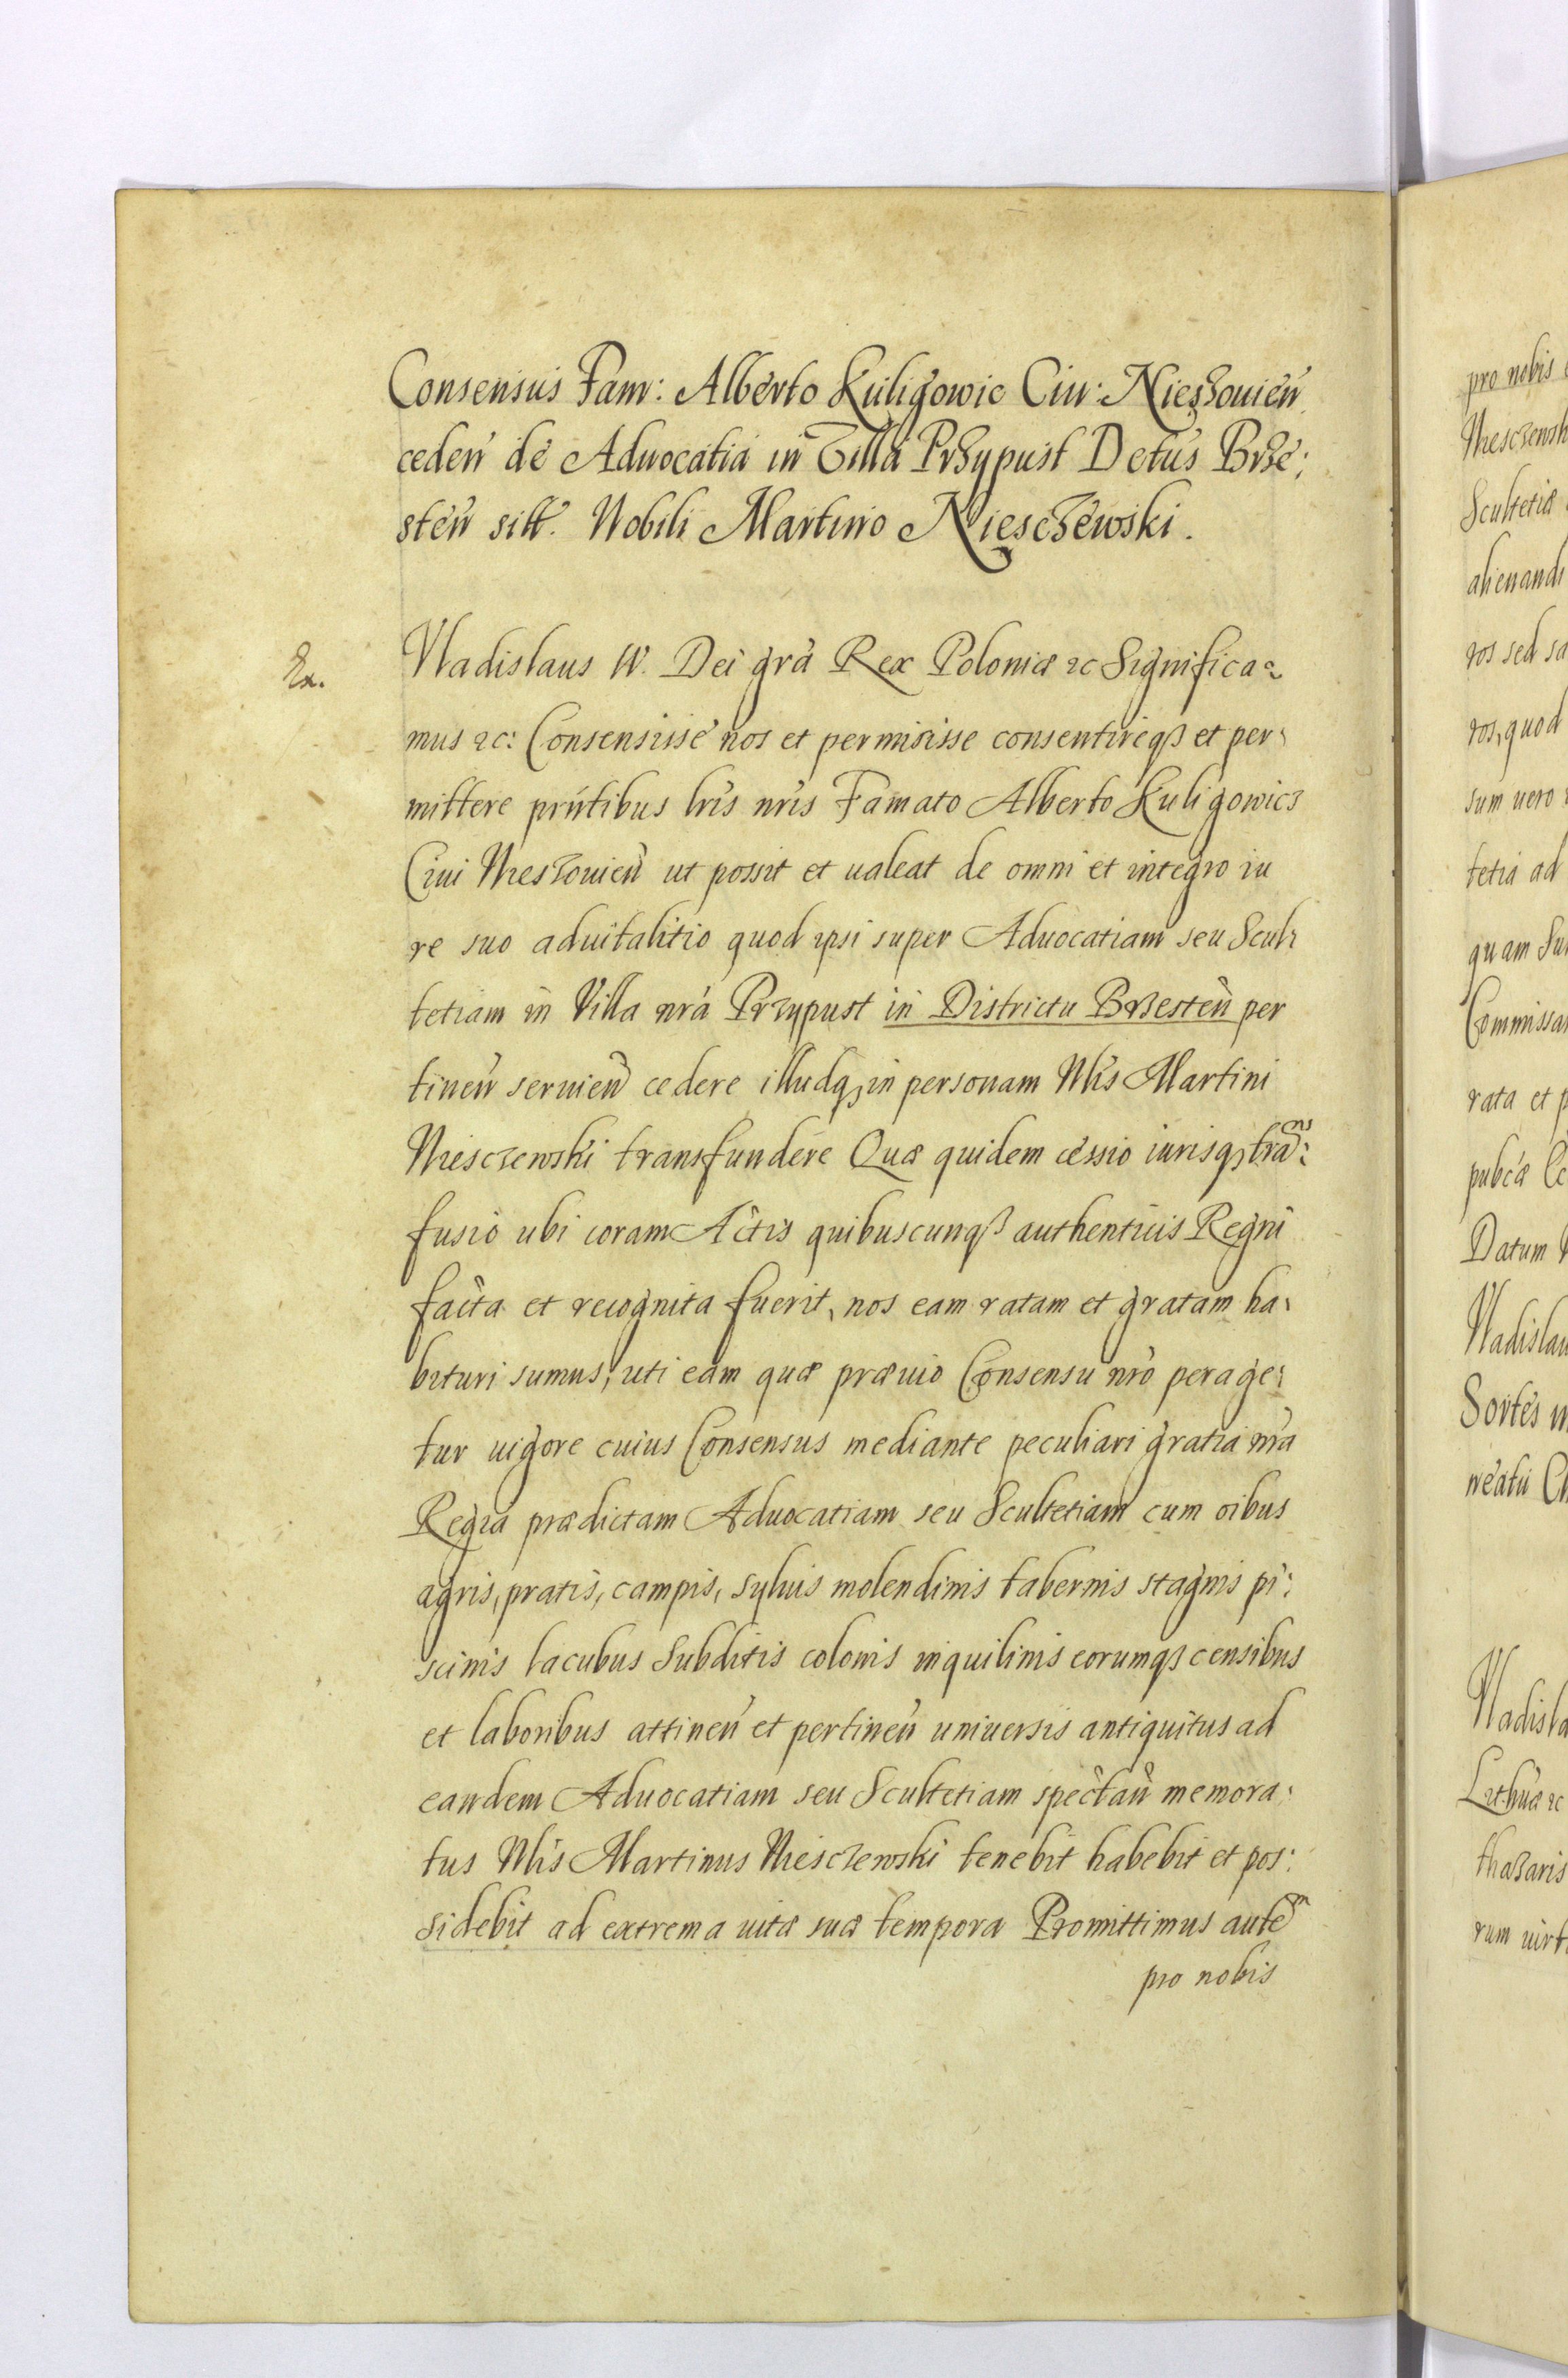 Consensus Fam: Alberto Kuligowic Civi: Nieszouień
cedeń de Aduocatia in Villa Przypust Dctus Brze:
steń sitt. Nobili Martino Niesczewski.
Ex.
Vladislaus IV. Dei grã Rex Poloniæ &c Significa=
mus &c: Consensisse nos et permisisse consentireqꝫ et per:
mittere prńtibus lris nris Famato Alberto Kuligowicz
Ciui Nieszouień ut possit et ualeat de omni et integro iu
re suo aduitalitio quod ipsi super Aduocatiam seu Scul:
tetiam in Villa nrã Przypust in Districtu Brzesteń per
tineń seruień cedere illudqꝫ in personam Nlis Martini
Niesczewski transfundere Quæ quidem cessio iurisqꝫ trãns:
fusio ubi coram Actis quibuscunqꝫ authenticis Regni
facta et recognita fuerit, nos eam ratam et gratam ha:
bituri sumus, uti eam quæ præuio Consensu nro perage:
tur uigore cuius Consensus mediante peculiari gratia nrã
Regia prædictam Aduocatiam seu Scultetiam cum oibus
agris, pratis, campis, syluis molendinis tabernis stagnis pi:
scinis lacubus Subditis colonis inquilinis eorumqꝫ censibus
et laboribus attineń et pertineń uniuersis antiquitus ad
eandem Aduocatiam seu Scultetiam spectań memora:
tus Nlis Martinus Niesczewski tenebit habebit et pos:
sidebit ad extrema uitæ suæ tempora Promittimus autem
pro nobis
pro nobis
Niesczewsk
Scultetiæ
alienandi
ros sed sa
ros, quod
sum uero
tetia ad
quam Su
Commissar
rata et p
pubcæ
Datum
Vladislau
Sortes
Vladisla
Lithuæ &c
thasaris
rum uirt